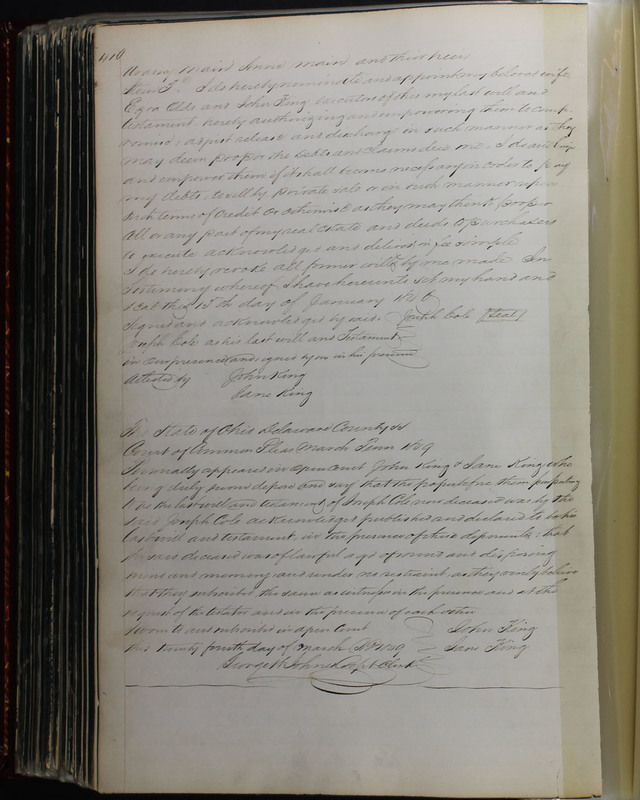 410
Main Anne Main and their heirs
Item I do hereby nominate and appoint my beloved wife
Ezra Olds and John King executors of this my last will and
testament hereby authorizing and empowering them to comp
romise adjust release and discharge in such manner as they
may deem proper the debts and claims due me. I do also
and empower them if it shall become necessary in order to pay
my debts to sell by private sale or in such manner upon
such terms of Credit or otherwise as they may think proper
all or any part of my real estate and deeds to purchasers
to execute acknowledge and deliver in fee simple
I do hereby revoke all former wills by me made In
Testimony whereof I have hereunto set my hand and
seal this 15th day of January
Signed and acknowledged by said Joseph Cole [Seal]
Joseph Cole as his last will and Testament
in our presence and signed by us in his presence
Attested by John King
Jane King
The State of Ohio Delaware County ss
Court of Common Pleas March Term 1849
Personally appeared in open Court John King & Jane King who
being duly sworn depose and say that the paper before them purporting
to be the last will and testament of Joseph Cole now deceased was by the
said Joseph Cole acknowledged published and declared to be his
last will and testament in the presence of these deponents: that
the said deceased was of lawful age of sound and disposing
mind and memory and under no restraint, as they verily believe
that they subscribed the same as witnesses in the presence and at the
request of the testator and in the presence of each other
Sworn to and subscribed in open Court John King
this twenty fourth day of March AD 1849 Jane King
George W Clerk